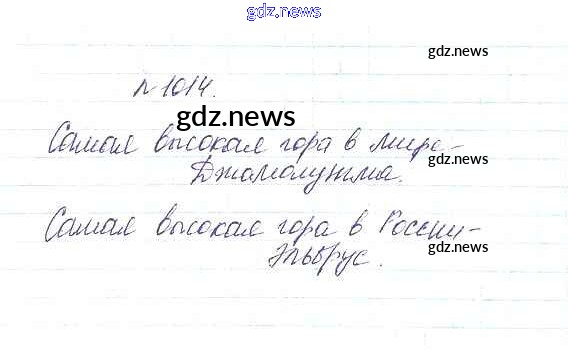 gdz.news
gdz.news
№1014.
gdz.news
Самая высокая гора в мире-
gdz.news
Джомолунгма.
Самая высокая гора в России-
gdz.news
Эльбрус.